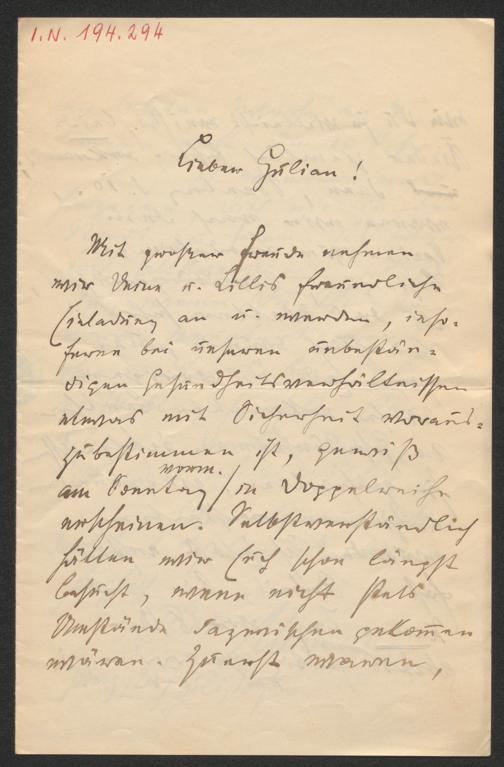 I.N. 194.294
Lieber Gulian!
Mit großer Freude nehmen
wir Deine u. Lillis freundliche
Einladung an u. werden, inso-
ferne bei unseren unbestän-
digen Gesundheitsverhältnissen
etwas mit Sicherheit voraus-
zubestimmen ist, gewiß
am Sonntag / vorm. in Doppelreihe
erscheinen. Selbstverständlich
hätten wir Euch schon längst
besucht, wenn nicht stets
Umstände dazwischen gekommen
wären. Zuerst waren,